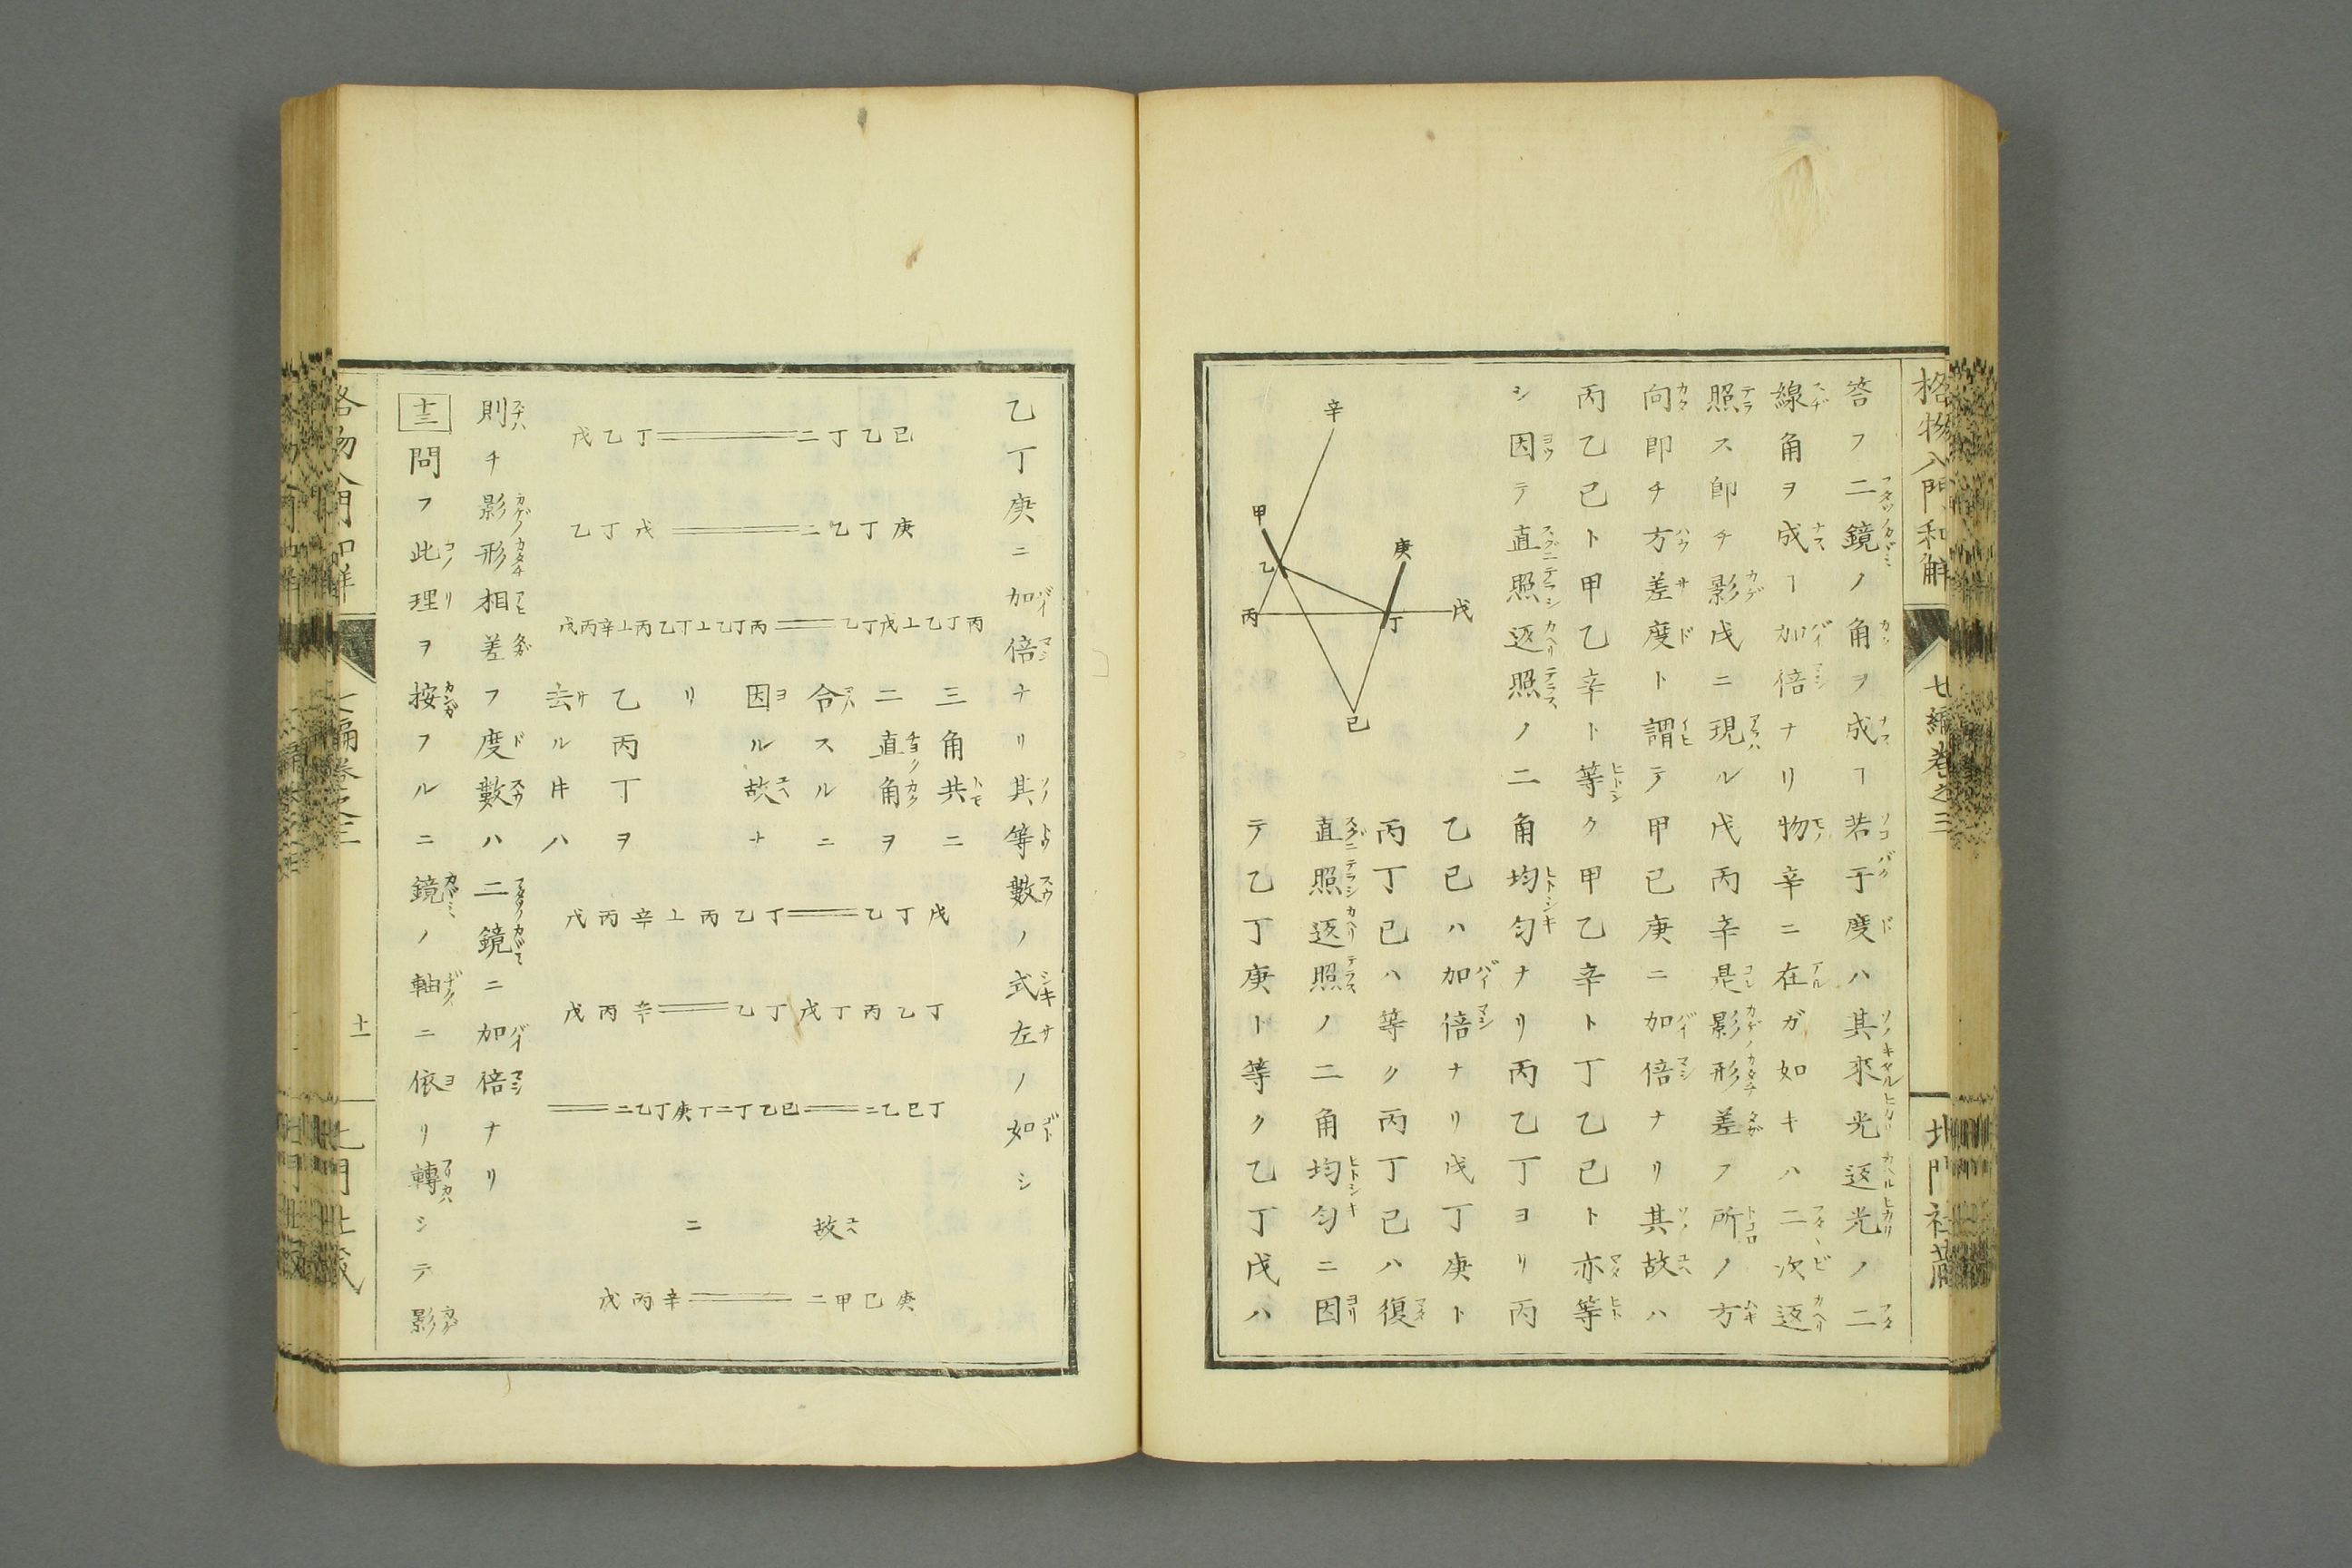 格物入門和解
七編巻之三
北門社藏
答フ二鏡ノ角ヲ成ヿ若干度ハ其來光返光ノ二
線角ヲ成ヿ加倍ナリ物辛ニ在ガ如キハ二次返
照ス卽チ影戊ニ現ル戊丙辛是影形差フ所ノ方
向卽チ方差度ト謂テ甲己庚ニ加倍ナリ其故ハ
丙乙己ト甲乙辛ト等ク甲乙辛ト丁乙己ト亦等
シ因テ直照返照ノ二角均匀ナリ丙乙丁ヨリ丙
乙己ハ加倍ナリ戊丁庚ト
丙丁己ハ等ク丙丁己ハ復
直照返照ノ二角均匀ニ因
テ乙丁庚ト等ク乙丁戊ハ
辛
甲
乙
丙
庚
丁
戊
己
乙丁庚ニ加倍ナリ其等數ノ式左ノ如シ
戊乙丁══二丁乙己
乙丁戊══二乙丁庚
戊丙辛丄丙乙丁丄乙丁丙══乙丁戊丄乙丁丙
三角共ニ
二直角ヲ
令スルニ
因ル故ナ
リ
乙丙丁ヲ
去ル寸ハ
戊丙辛丄丙乙丁══乙丁戊
戊丙辛══乙丁戊丁丙乙丁
══二乙丁庚丁二丁乙己══二乙己丁
故
ニ
戊丙辛══二甲己庚
則チ影形相差フ度數ハ二鏡ニ加倍ナリ
十三 問フ此理ヲ按フルニ鏡ノ軸ニ依リ轉シテ影
十一